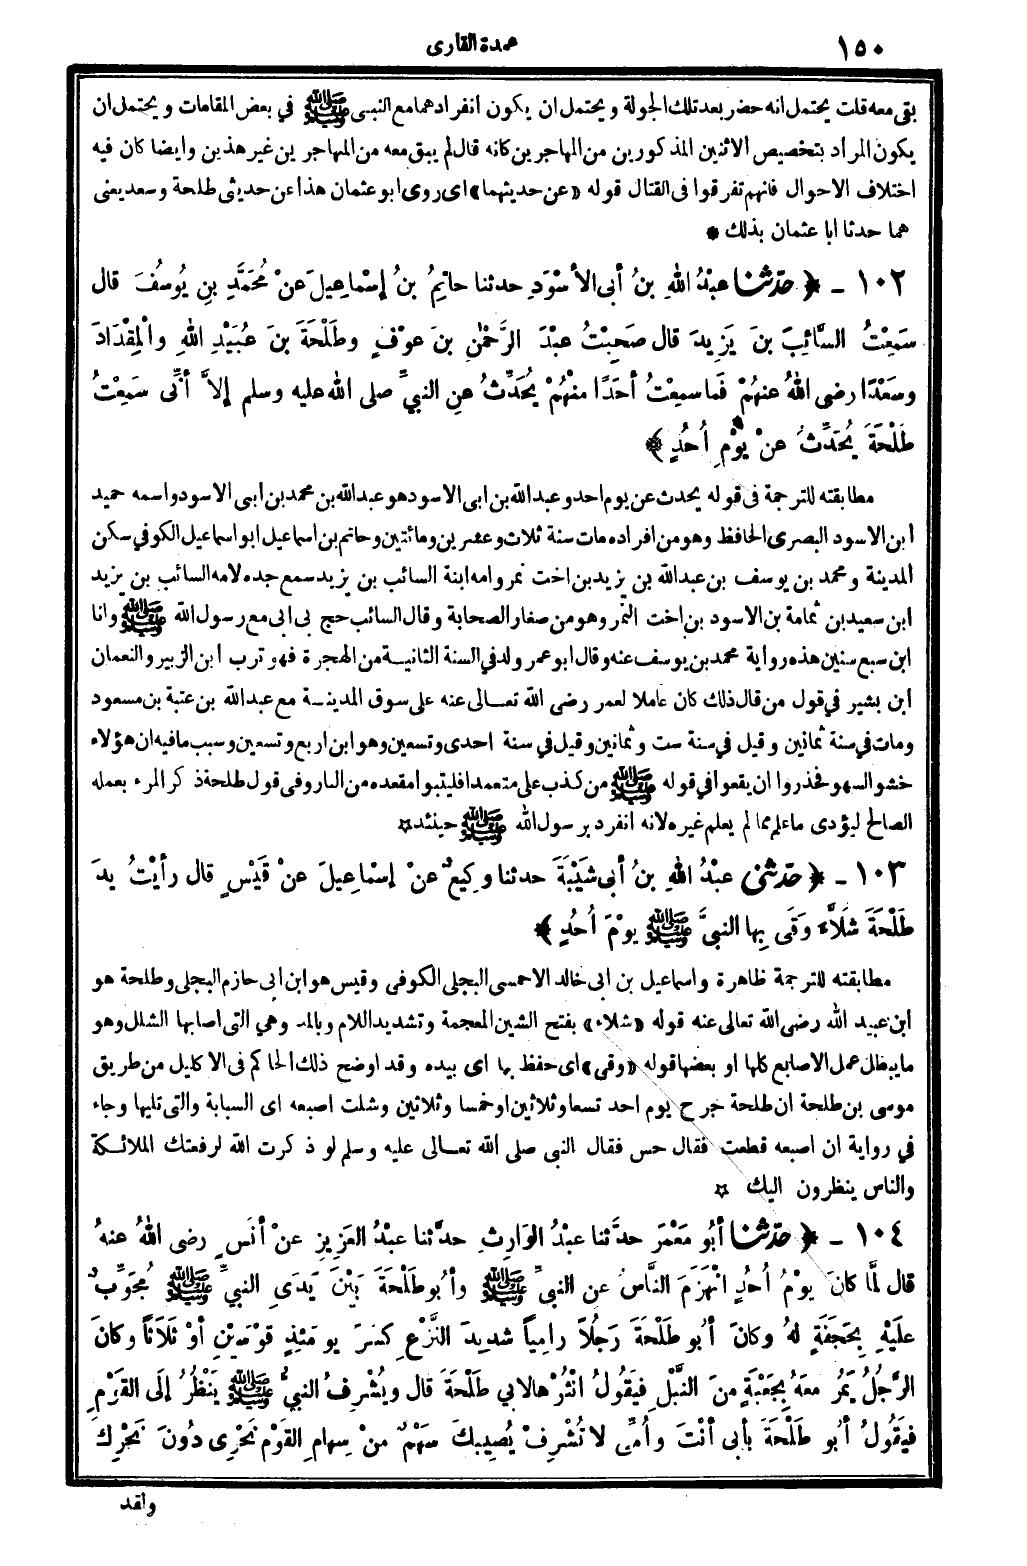 ١٥٠
عمدة القارى
بقى معه قلت يحتمل انه حضر بعد تلك الجولة ويحتمل ان يكون انفرادهما مع النبى ﷺ في بعض المقامات ويحتمل ان
يكون المراد بتخصيص الاثنين المذكورين من المهاجرين كانه قال لم يبق معه من المهاجرين غير هذين وايضا كان فيه
اختلاف الاحوال فانهم تفرقوا فى القتال قوله «عن حديثهما» اى روى ابو عثمان هذا عن حديثى طلحة وسعد يعنى
هما حدثا ابا عثمان بذلك *
١٠٢ - ﴿ حدّثنا عبْدُ اللهِ بنُ أبى الأسْوَدِ حدثنا حاتِمُ بنُ إسْماعِيلَ عنْ مُحَمَّدِ بنِ يُوسُفَ قال
سَمِعْتُ السَّائِبَ بنَ يَزِيدَ قال صَحِبْتُ عبْدَ الرَّحْمٰنِ بنَ عوْفٍ وطَلْحَةَ بنَ عُبَيْدِ اللهِ والْمِقْدَادَ
وسَعْدًا رضى اللهُ عنهُمْ فَما سمِعْتُ أحَدًا منْهُمْ يُحَدِّثُ عنِ النبيِّ صلى الله عليه وسلم إلاَّ أنِّى سَمِعْتُ
طَلْحَةَ يُحَدِّثُ عنْ يوْمِ أُحُدٍ ﴾
مطابقته للترجمة فى قوله يحدث عن يوم احد وعبد الله بن ابى الاسود هو عبد الله بن محمد بن ابى الاسود واسمه حميد
ابن الاسود البصرى الحافظ وهو من افراده مات سنة ثلاث وعشرين ومائتين وحاتم بن اسماعيل ابو اسماعيل الكوفي سكن
المدينة ومحمد بن يوسف بن عبد الله بن يزيد بن اخت نمر وامه ابنة السائب بن يزيد سمع جده لامه السائب بن يزيد
ابن سعيد بن ثمامة بن الاسود بن اخت النمر وهو من صغار الصحابة وقال السائب حج بى ابى مع رسول الله ﷺ وانا
ابن سبع سنين هذه رواية محمد بن يوسف عنه وقال ابو عمر ولد في السنة الثانية من الهجرة فهو ترب ابن الزبير والنعمان
ابن بشير في قول من قال ذلك كان عاملا لعمر رضى الله تعالى عنه على سوق المدينة مع عبد الله بن عتبة بن مسعود
ومات في سنة ثمانين وقيل في سنة ست وثمانين وقيل في سنة احدى وتسعين وهو ابن اربع وتسعين وسبب مافيه ان هؤلاء
خشوا السهو فحذروا ان يقعوا في قوله ﷺ من كذب على متعمدا فليتبوا مقعده من النار وفى قول طلحة ذكر المرء بعمله
الصالح ليؤدى ما علم مما لم يعلم غيره لانه انفرد برسول الله ﷺ حينئذ☆
١٠٣ - ﴿ حدّثنى عبْدُ اللهِ بنُ أبى شَيْبَةَ حدثنا وكِيعٌ عنْ إسْماعِيلَ عنْ قَيْسٍ قال رأيْتُ يدَ
طَلْحَةَ شَلَّاءَ وَقَى بِها النبيَّ ﷺ يوْمَ أُحُدٍ ﴾
مطابقته للترجمة ظاهرة واسماعيل بن ابى خالد الاحمسى البجلى الكوفى وقيس هو ابن ابى حازم البجلى وطلحة هو
ابن عبيد الله رضى الله تعالى عنه قوله «شلاء» بفتح الشين المعجمة وتشديد اللام وبالمد وهي التى اصابها الشلل وهو
ما يبطل عمل الاصابع كلها او بعضها قوله «وقى» اى حفظ بها اى بيده وقد اوضح ذلك الحاكم فى الاكليل من طريق
موسى بن طلحة ان طلحة جرح يوم احد تسعا وثلاثين او خمسا وثلاثين وشلت اصبعه اى السبابة والتى تليها وجاء
في رواية ان اصبعه قطعت فقال حس فقال النبى صلى الله تعالى عليه وسلم لو ذكرت الله لرفعتك الملائكة
والناس ينظرون اليك ☆
١٠٤ - ﴿ حدّثنا أبُو مَعْمَرٍ حدَّثنا عبْدُ الوَارِثِ حدّثنا عبْدُ العَزِيزِ عنْ أنَسٍ رضى اللهُ عنهُ
قال لَمَّا كانَ يوْمُ أُحُدٍ انْهَزَمَ النَّاسُ عنِ النبيِّ ﷺ وأبُو طَلْحَةَ بيْنَ يَدَىِ النبيِّ ﷺ مُجَوِّبٌ
علَيْهِ بِحَجَفَةٍ لهُ وكانَ أبُو طَلْحَةَ رَجُلاً رامِياً شديدَ النَّزْعِ كسَرَ يوْمَئِذٍ قوْسَيْنِ أوْ ثَلاَثاً وكانَ
الرَّجُلُ يَمُرُّ معَهُ بِجَعْبَةٍ منَ النَّبْلِ فيَقُولُ انْثُرْها لابي طَلْحَةَ قال ويُشْرِفُ النبيُّ ﷺ يَنْظُرُ إلَى القَوْمِ
فيَقُولُ أبُو طَلْحَةَ بأبى أنْتَ وأُمِّى لاَ تُشْرِفْ يُصِيبُكَ سَهْمٌ منْ سِهامِ القَوْمِ نَحْرِى دُونَ نَحْرِكَ
ولقد